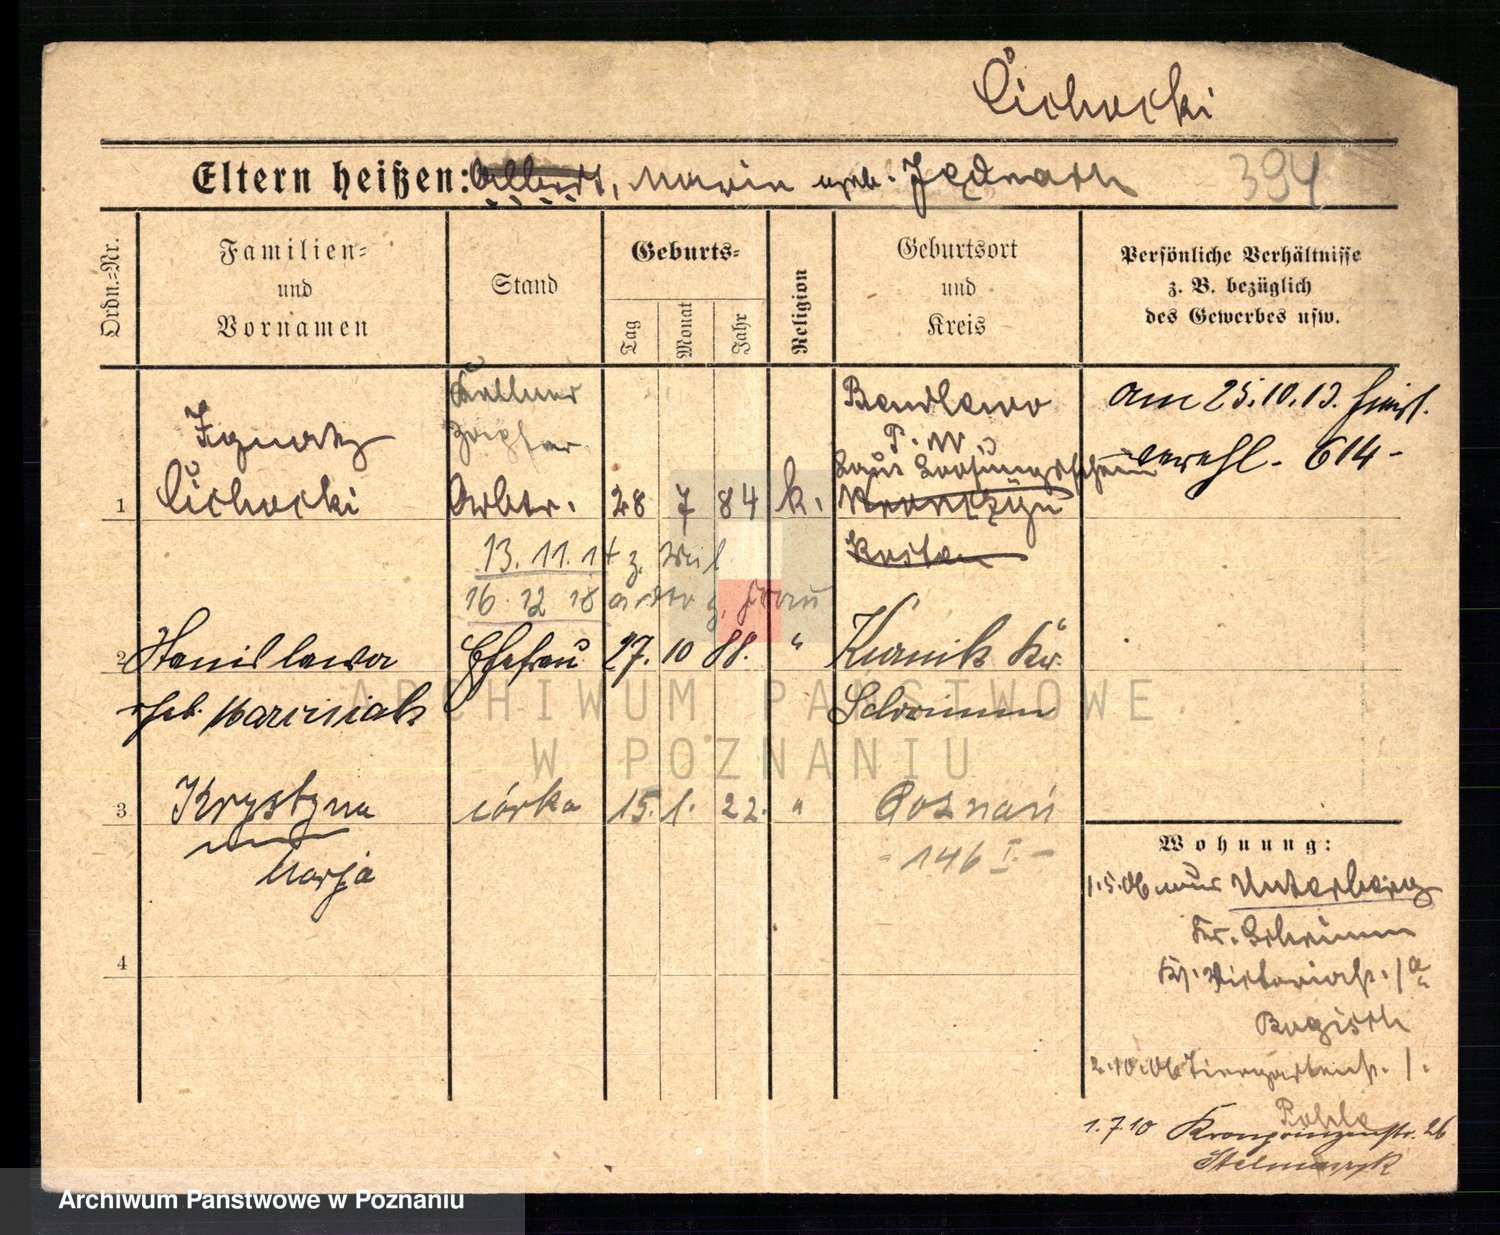 Cichocki
Eltern heißen: Albert, Maria geb. Jednach
394
Ordn.=Nr.
Familien=
und
Vornamen
Stand
Geburts=
Tag
Monat
Jahr
Religion
Geburtsort
und
Kreis
Persönliche Verhältnisse
z. B. bezüglich
des Gewerbes usw.
1
Ignatz
Cichocki
Kellner
Arbtr.
28 7 84 k.
Bendlewo
P. W
Laut Losungsschein
Kosten
am 25.10.13.
614-
13. 11. 14 z.
16. 12 18 z. Frau
2
Stanislawa
geb. Marciniak
Ehefrau
27. 10 88. "
Kurnik Kr.
Schrimm
3
Krystyna
Marja
córka
15. 1. 22. "
Poznań
- 146 I. -
4
Wohnung:
1.5.06 aus Unterberg
Kr. Schrimm
Victoriastr. 1a
Bogisch
2.10.06 Tiergartenstr. 1.
Pohle
1.7.10 Kronprinzenstr. 26
Stelmaszyk
ARCHIWUM PAŃSTWOWE
W POZNANIU
Archiwum Państwowe w Poznaniu